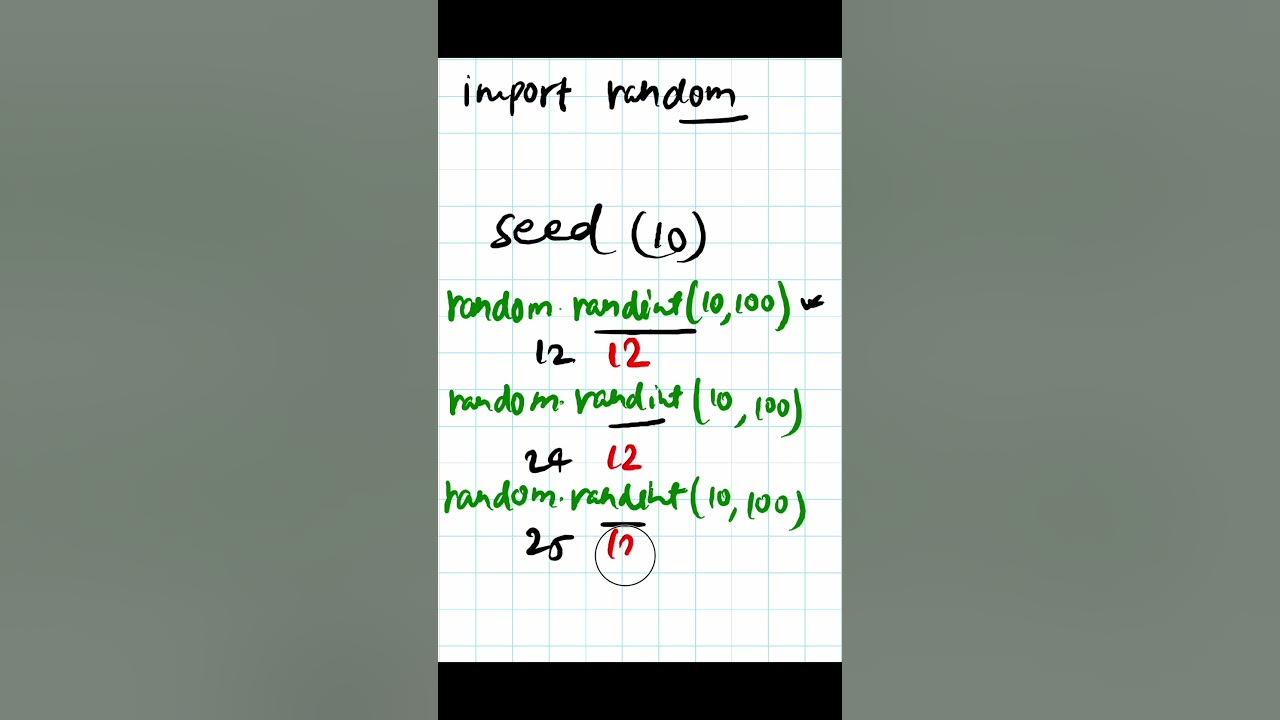 import random
seed (10)
random.randint(10,100)
12 12
random.randint(10,100)
24 12
random.randint(10,100)
25